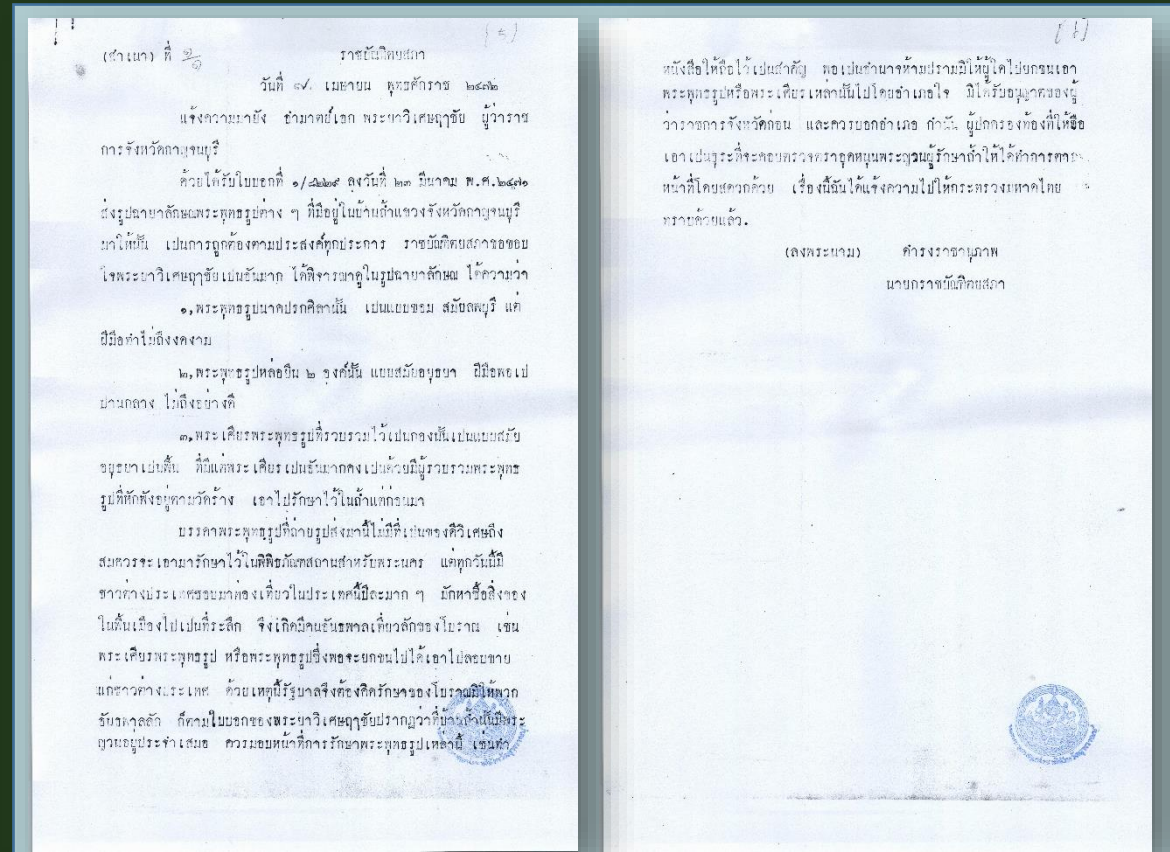 (สำเนา) ที่
ราชบัณฑิตยสภา
วันที่ เมษายน พุทธศักราช ๒๔๗๒
แจ้งความมายัง อำมาตย์เอก พระยาวิเศษฤๅชัย ผู้ว่าราช
การจังหวัดกาญจนบุรี
ด้วยได้รับใบบอกที่ ลงวันที่ ๒๓ มีนาคม พ.ศ.๒๔๗๑
ส่งรูปฉายาลักษณพระพุทธรูปต่าง ๆ ที่มีอยู่ในบ้านถ้ำแขวงจังหวัดกาญจนบุรี
มาให้นั้น เปนการถูกต้องตามประสงค์ทุกประการ ราชบัณฑิตยสภาขอขอบ
ใจพระยาวิเศษฤๅชัยเปนอันมาก ได้พิจารณาดูในรูปฉายาลักษณ ได้ความว่า
๑,พระพุทธรูปนาคปรกศิลานั้น เปนแบบขอม สมัยลพบุรี แต่
ฝีมือทำไม่ถึงงดงาม
๒,พระพุทธรูปหล่อยืน ๒ องค์นั้น แบบสมัยอยุธยา ฝีมือพอเป
ปานกลาง ไม่ถึงอย่างดี
๓,พระเศียรพระพุทธรูปที่รวบรวมไว้เปนกองนั้นเปนแบบสมัย
อยุธยาเปนพื้น ที่มีแต่พระเศียรเปนอันมากคงเปนด้วยมีผู้รวบรวมพระพุทธ
รูปที่หักพังอยู่ตามวัดร้าง เอาไปรักษาไว้ในถ้ำแต่ก่อนมา
บรรดาพระพุทธรูปที่ถ่ายรูปส่งมานี้ไม่มีที่เปนของดีวิเศษถึง
สมควรจะเอามารักษาไว้ในพิพิธภัณฑสถานสำหรับพระนคร แต่ทุกวันนี้มี
ชาวต่างประเทศชอบมาท่องเที่ยวในประเทศนี้ปีละมาก ๆ มักหาซื้อสิ่งของ
ในพื้นเมืองไปเปนที่ระลึก จึงเกิดมีคนอันธพาลเที่ยวลักของโบราณ เช่น
พระเศียรพระพุทธรูป หรือพระพุทธรูปซึ่งพอจะยกขนไปได้เอาไปลอบขาย
แก่ชาวต่างประเทศ ด้วยเหตุนี้รัฐบาลจึงต้องคิดรักษาของโบราณมิให้พวก
อันธพาลลัก ก็ตามใบบอกของพระยาวิเศษฤๅชัยปรากฏว่าที่บ้านถ้ำนั้นมีพระ
ญวนอยู่ประจำเสมอ ควรมอบหน้าที่การรักษาพระพุทธรูปเหล่านี้ เช่นทำ
หนังสือให้ถือไว้เปนสำคัญ พอเปนอำนาจห้ามปรามมิให้ผู้ใดไปยกขนเอา
พระพุทธรูปหรือพระเศียรเหล่านั้นไปโดยอำเภอใจ มิได้รับอนุญาตของผู้
ว่าราชการจังหวัดก่อน และควรบอกอำเภอ กำนัน ผู้ปกครองท้องที่ให้ถือ
เอาเปนธุระที่จะคอยตรวจตราอุดหนุนพระญวนผู้รักษาถ้ำให้ได้ทำการตาม
หน้าที่โดยสดวกด้วย เรื่องนี้ฉันได้แจ้งความไปให้กระทรวงมหาดไทย
ทราบด้วยแล้ว.
(ลงพระนาม) ดำรงราชานุภาพ
นายกราชบัณฑิตยสภา